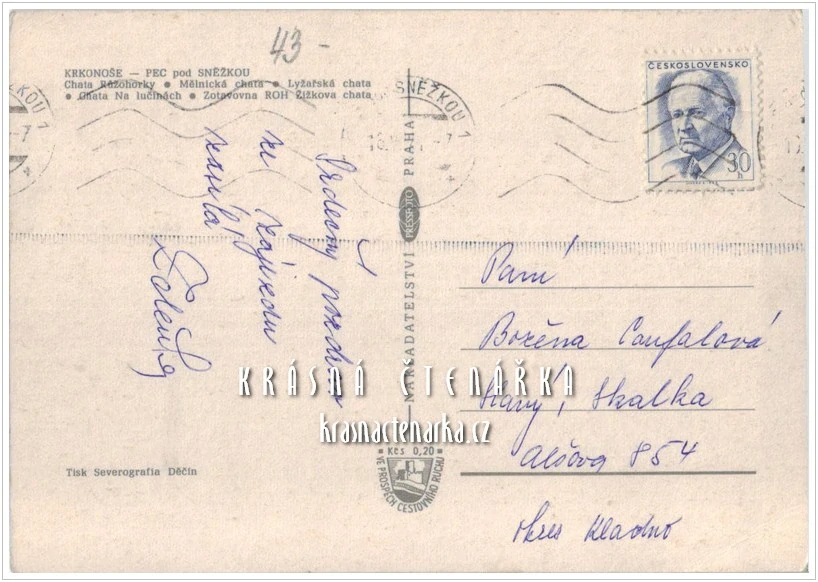 43-
KRKONOŠE — PEC pod SNĚŽKOU
Chata Růžohorky • Mělnická chata • Lyžařská chata
• Chata Na lučinách • Zotavovna ROH Žižkova chata
ČESKOSLOVENSKO
30
h
SNĚŽKOU 1
Srdečný pozdrav
ze zájezdu
zasílá
NAKLADATELSTVÍ PRESSFOTO PRAHA
Paní
Božena Caufalová
Slaný, Skalka
Alšova 854
okres Kladno
KRÁSNÁ ČTENÁŘKA
krasnactenarka.cz
Kčs 0,20
VE PROSPĚCH CESTOVNÍHO RUCHU
Tisk Severografia Děčín